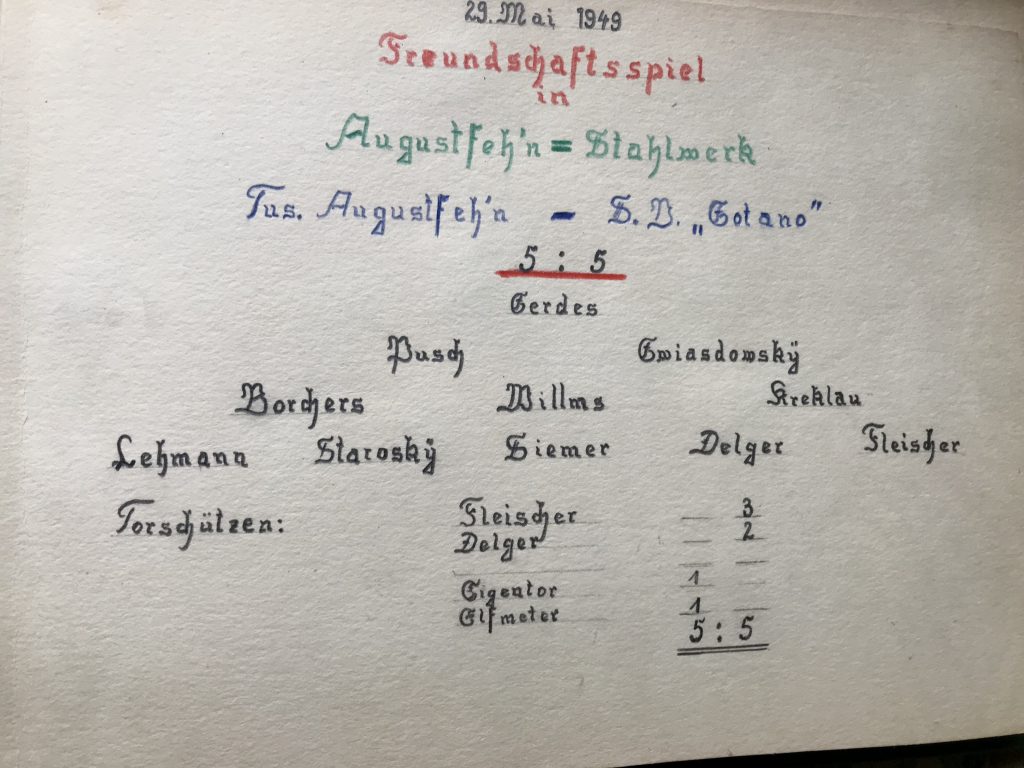 29. Mai 1949
Freundschaftsspiel
in
Augustfeh'n = Stahlwerk
Tus. Augustfeh'n - S.V. „Gotano"
5 : 5
Gerdes
Pusch Gwiasdowskÿ
Borchers Willms Kreklau
Lehmann Staroskÿ Siemer Delger Fleischer
Torschützen: Fleischer — 3
Delger — 2
— —
Eigentor 1 —
Elfmeter 1 —
5 : 5